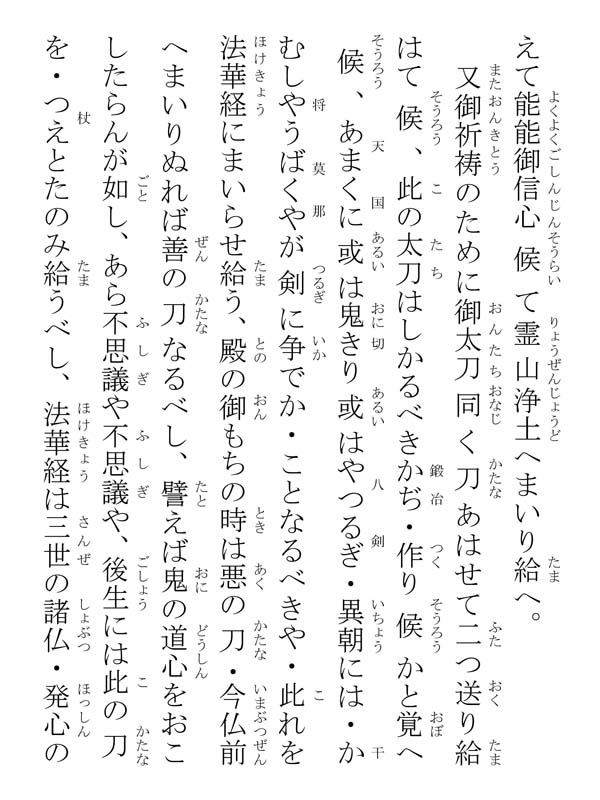 えて能能御信心候て霊山浄土へまいり給へ。
又御祈祷のために御太刀同く刀あはせて二つ送り給
はて候、此の太刀はしかるべきかぢ・作り候かと覚へ
候、あまくに或は鬼きり或はやつるぎ・異朝には・か
むしやうばくやが剣に争でか・ことなるべきや・此れを
法華経にまいらせ給う、殿の御もちの時は悪の刀・今仏前
へまいりぬれば善の刀なるべし、譬えば鬼の道心をおこ
したらんが如し、あら不思議や不思議や、後生には此の刀
を・つえとたのみ給うべし、法華経は三世の諸仏・発心の